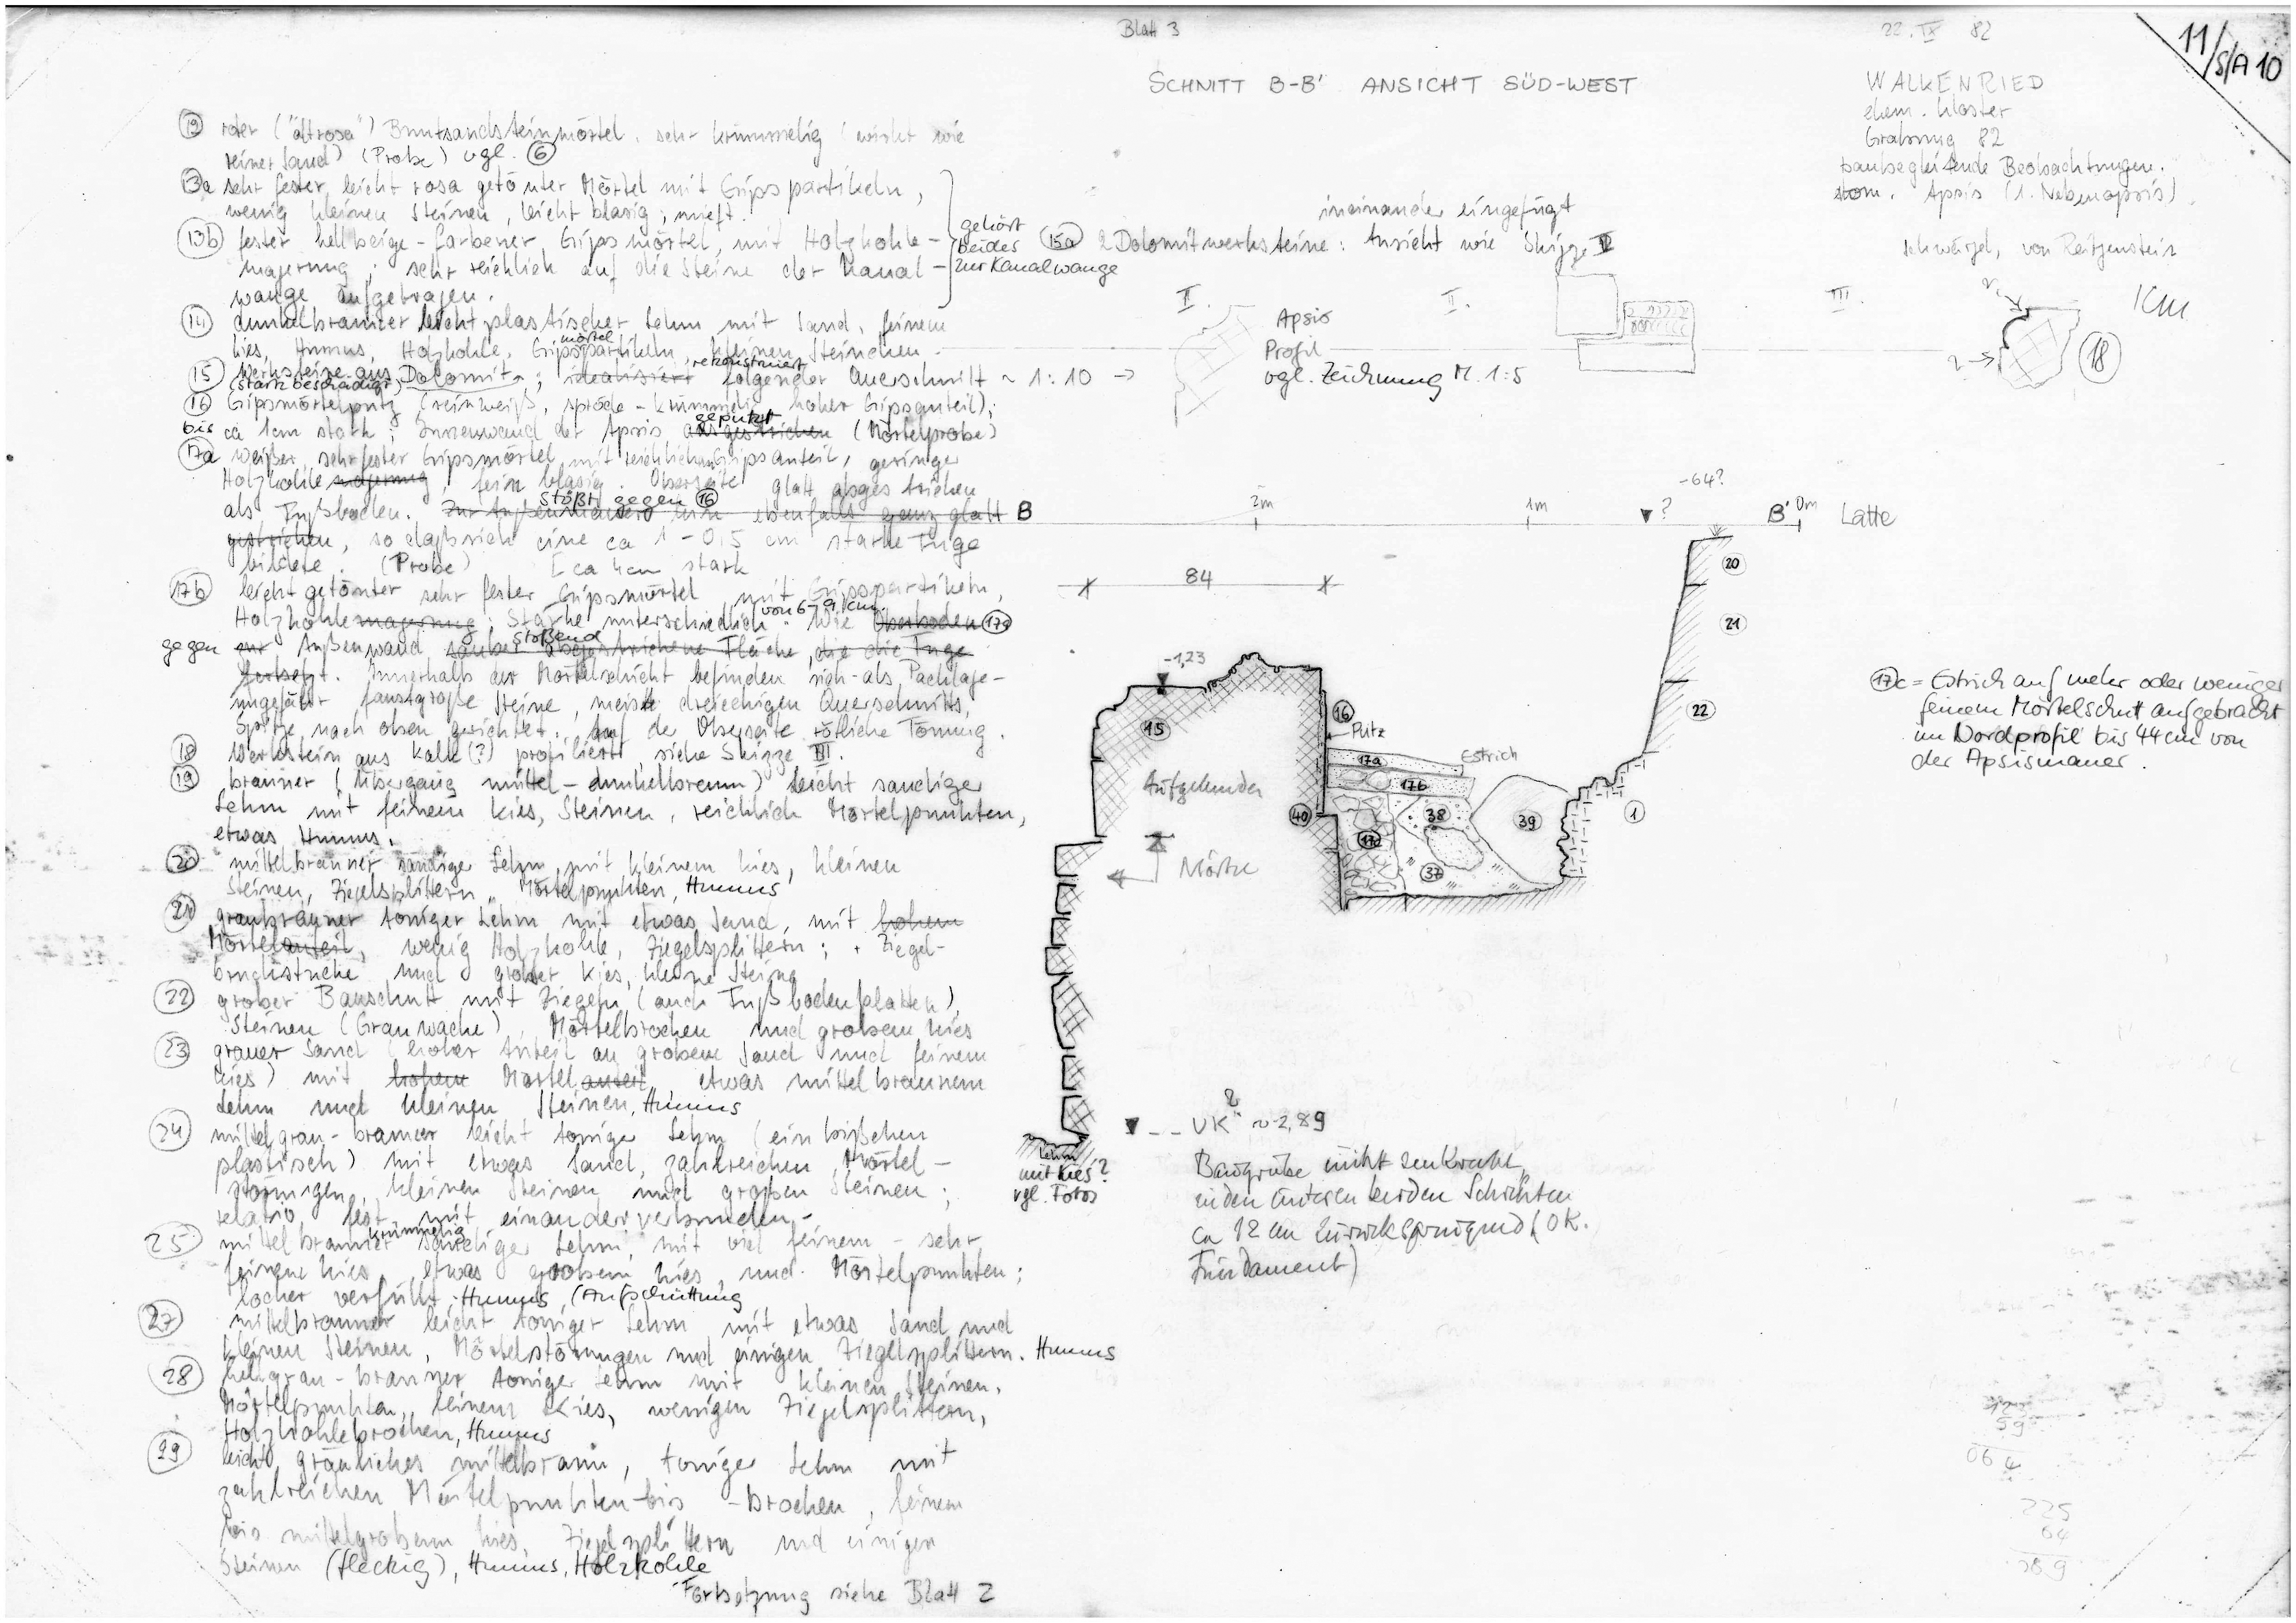 Blatt 3
22. IX 82
11/S/A 10
SCHNITT B-B' ANSICHT SÜD-WEST
WALKENRIED
ehem. Kloster
Grabung 82
baubegleitende Beobachtungen.
Apsis (1. Nebenapsis)
von Reitzenstein
KM
roter ("altrosa") Buntsandsteinmörtel, sehr krümmelig (wirkt wie
reiner Sand) (Probe) vgl. 6
13a sehr fester, leicht rosa getönter Mörtel mit Gipspartikeln,
wenig kleinen Steinen, leicht blasig,
13b fester hellbeige-farbener Gipsmörtel, mit Holzkohle-
magerung; sehr reichlich auf die Steine der Kanal-
wange aufgetragen.
gehört
beides
zur Kanalwange
14 dunkelbrauner leicht plastischer Lehm mit Sand, feinem
Kies, Humus, Holzkohle, Gipsmörtelpartikeln, kleinen Steinchen
15 Werksteine aus Dolomit; idealisiert rekonstruiert folgender Querschnitt ~ 1:10 →
(stark beschädigt)
16 Gipsmörtelputz (reinweiß, spröde-krümmelig, hoher Gipsanteil);
bis ca 1cm stark; Innenwand der Apsis ausgestrichen geputzt (Mörtelprobe)
17a weißer, sehr fester Gipsmörtel mit reichlichem Gipsanteil, geringe
Holzkohlemagerung, fein blasig. Oberseite glatt abgestrichen
als Fußboden. stößt gegen 16 ebenfalls ganz glatt
gestrichen, so daß sich eine ca 1-0,5 cm starke Fuge
bildete. (Probe) [ca 4cm stark
17b leicht getönter sehr fester Gipsmörtel mit Gipspartikeln,
Holzkohlemagerung; Stärke unterschiedlich von 6-9 cm. Wie Oberboden 17a
gegen zur Außenwand stoßend sauber abgestrichene Fläche, die die Fuge
fortsetzt. Innerhalb der Mörtelschicht befinden sich - als Packlage -
ungefähr faustgroße Steine, meist dreieckigen Querschnitts,
Spitze nach oben gerichtet. auf der Oberseite rötliche Tönung.
18 Werkstein aus Kalk(?) profiliert, siehe Skizze III.
19 brauner (Übergang mittel-dunkelbraun) leicht sandiger
Lehm mit feinem Kies, Steinen, reichlich Mörtelpunkten,
etwas Humus.
20 mittelbrauner sandiger Lehm, mit kleinem Kies, kleinen
Steinen, Ziegelsplittern, Mörtelpunkten, Humus
21 graubrauner toniger Lehm mit etwas Sand, mit hohem
Mörtelanteil, wenig Holzkohle, Ziegelsplittern; + Ziegel-
bruchstücke und grober Kies, kleine Steine
22 grober Bauschutt mit Ziegeln (auch Fußbodenplatten),
Steinen (Grauwacke), Mörtelbrocken und grobem Kies
23 grauer Sand (hoher Anteil an grobem Sand und feinem
Kies) mit hohem Mörtelanteil, etwas mittelbraunem
Lehm und kleinen Steinen, Humus
24 mittelgrau-brauner leicht toniger Lehm (ein bißchen
plastisch) mit etwas Sand, zahlreichen Mörtel-
störungen, kleinen Steinen und großen Steinen;
relativ fest mit einander verbunden.
25 mittelbrauner krümmelig sandiger Lehm, mit viel feinem - sehr
feinem Kies, etwas grobem Kies, und Mörtelpunkten;
locker verfüllt; Humus, (Aufschüttung
27 mittelbrauner leicht toniger Lehm mit etwas Sand und
kleinen Steinen, Mörtelstörungen und einigen Ziegelsplittern. Humus
28 hellgrau-brauner toniger Lehm mit kleinen Steinen,
Mörtelpunkten, feinem Kies, wenigen Ziegelsplittern,
Holzkohlebrocken, Humus
29 leicht gräuliches mittelbraun, toniger Lehm mit
zahlreichen Mörtelpunkten bis -brocken, feinem
bis mittelgrobem Kies, Ziegelsplittern und einigen
Steinen (fleckig), Humus, Holzkohle
Fortsetzung siehe Blatt 2
ineinander eingefügt
15a 2 Dolomitwerksteine: Ansicht wie Skizze II
I.
II.
III.
Apsis
Profil
vgl. Zeichnung M. 1:5
18
-64?
B
2m
1m
?
B'
0m
Latte
84
-1,23
20
21
22
15
16
Putz
Estrich
17a
17b
Aufgehendes
40
38
39
17c
37
1
17c = Estrich auf mehr oder weniger
feinem Mörtelschutt aufgebracht
im Nordprofil bis 44cm von
der Apsismauer.
UK ~ -2,89
Lehm
mit Kies?
vgl. Fotos
Baugrube nicht senkrecht,
in den unteren beiden Schichten
ca 12 cm zurückspringend (OK.
Fundament)
59
064
225
64
289